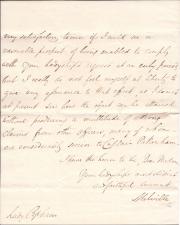 any satisfactory terms if I could see a
favorable prospect of being enabled to comply
with your Ladyships request at an early period
but I really do not feel myself at liberty to
give any assurance to that effect, as I cannot
at present see how the object can be attained
without producing a multitude of strong
claims from other officers, many of whom
are considerably senior to Captain
I have the honor to be, Dear Madam
Your Ladyships most obedient
and faithful servant
Melville
Lady